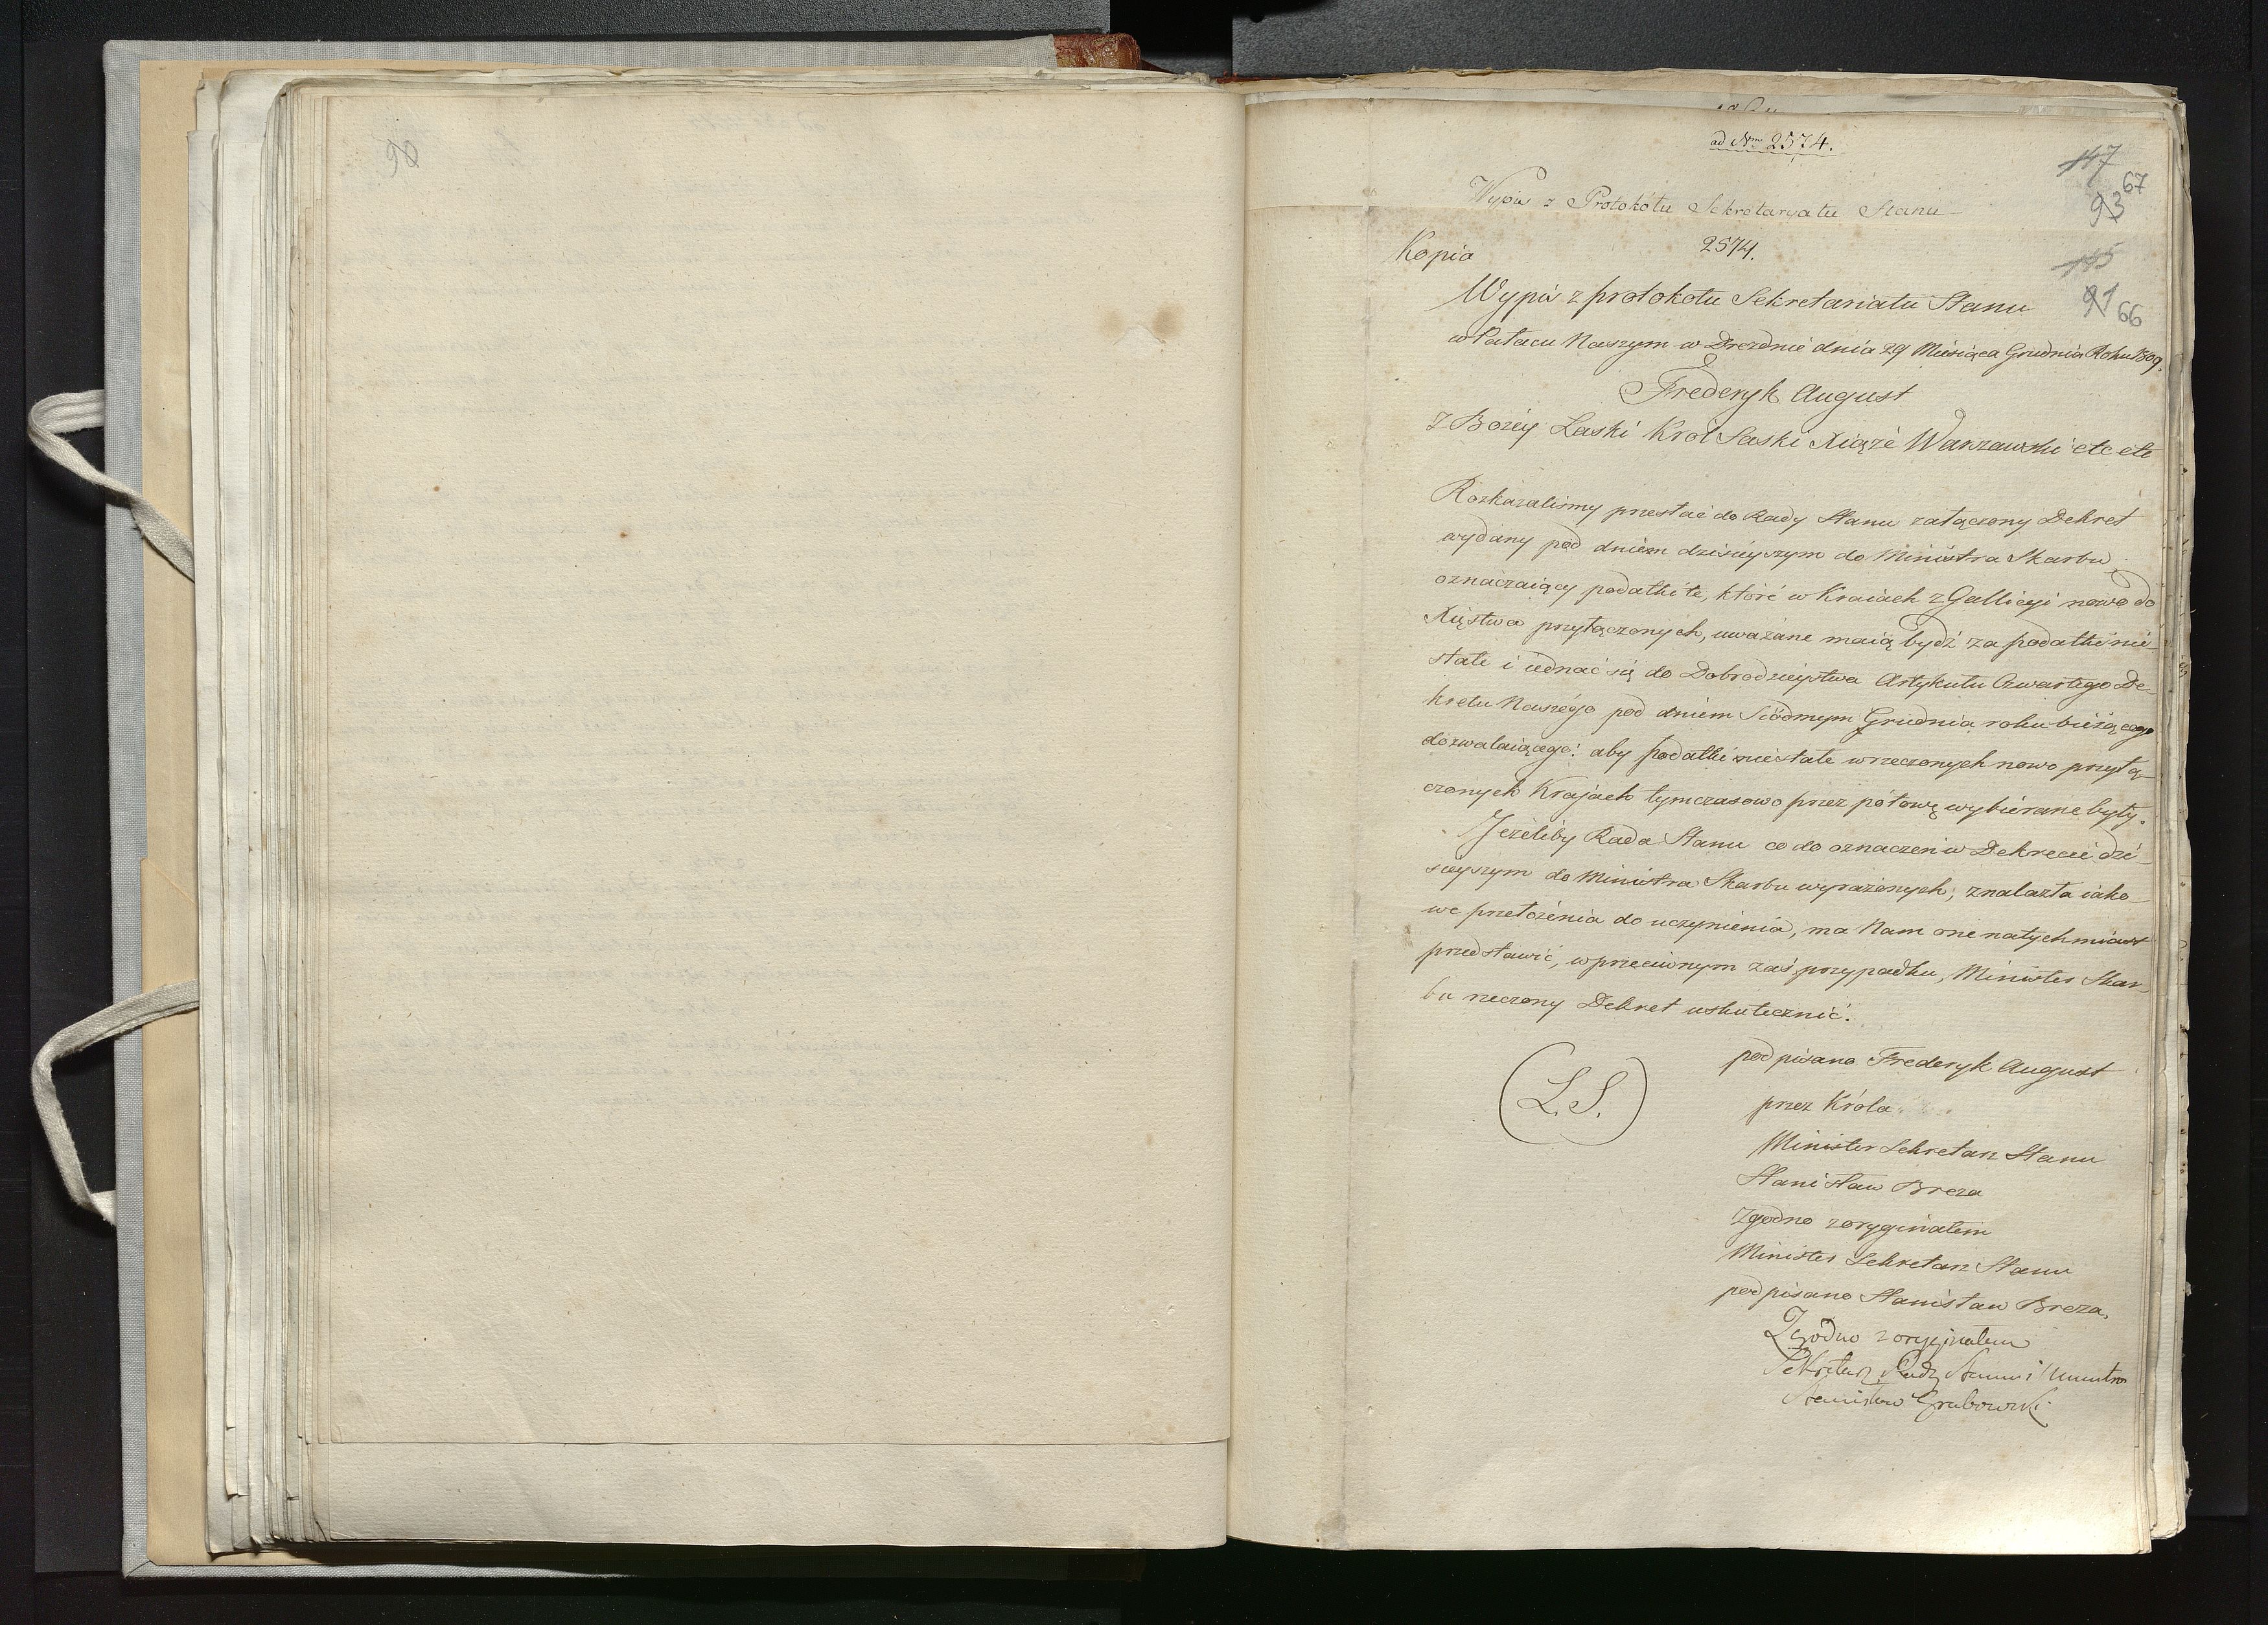 90
ad Nrm 2574.
147
67
93
Wypis z Protokołu Sekretaryatu Stanu
Kopia
2574.
145
91 66
Wypis z protokołu Sekretariatu Stanu
w Pałacu Naszym w Dreźnie dnia 29 Miesiąca Grudnia Roku 1809.
Frederyk August
Z Bożey Łaski Krol Saski Xiąże Warszawski etc etc
Rozkazalismy przesłać do Rady Stanu załączony Dekret
wydany pod dniem dzisieyszym do Ministra Skarbu
oznaczaiący podatki te, które w Kraiach z Gallicyi nowo do
Xięstwa przyłączonych, uważane maią bydź za podatki nie-
stałe i iednać się do Dobrodzieystwa Artykułu Czwartego De-
kretu Naszego pod dniem Siódmym Grudnia roku bieżącego
dozwalaiącego: aby podatki niestałe w rzeczonych nowo przyłą-
czonych Krajach tymczasowo przez połowę wybierane były.
Jeżeliby Rada Stanu co do oznaczeń w Dekrecie dzi-
sieyszym do Ministra Skarbu wyrażonych; znalazła iako-
we przełożenia do uczynienia, ma Nam one natychmiast
przedstawić, w przeciwnym zaś przypadku, Minister Skar-
bu rzeczony Dekret uskutecznić.
podpisano Frederyk August
(L.S.)
przez Króla
Minister Sekretarz Stanu
Stanisław Breza
Zgodno z oryginałem
Minister Sekretarz Stanu
podpisano Stanisław Breza.
Zgodno z oryginałem
Sekretarz Rady Stanu i Ministrów
Stanisław Grabowski